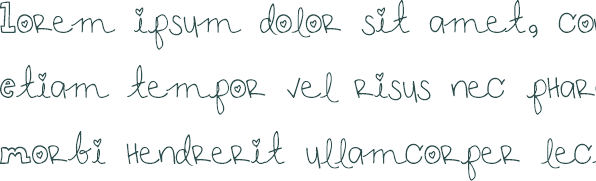 Lorem ipsum dolor sit amet, co
etiam tempor vel risus nec phar
morbi hendrerit ullamcorper lec